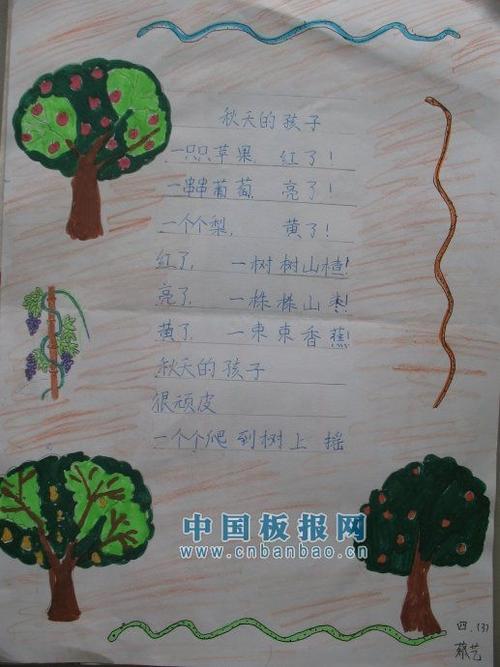 秋天的孩子
一只只苹果, 红了!
一串串葡萄, 亮了!
一个个梨, 黄了!
红了, 一树树山楂!
亮了, 一株株山枣!
黄了, 一束束香蕉!
秋天的孩子
很顽皮
一个个爬到树上 摇
中国板报网
www.cnbanbao.cn
四.(3)